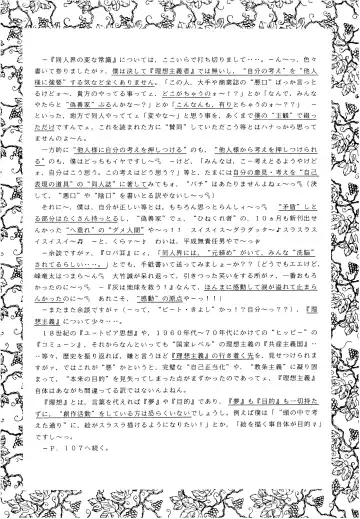 －『同人界の変な常識』については、ここいらで打ち切りまして…。－んー～っ、色々
書いて参りましたが、僕は決して『理想主義者』では無いし、“自分の考え”を“他人
様に強要”する気など全くありません。「この人、大手や商業誌の“悪口”ばっか言っと
るけどォ～、貴方のやってる事ってェ、どこがちゃうのォ～！？」とか「なんで、みんな
やたらと“偽善家”ぶるんかな～？」とか「こんなんも、有りとちゃうのォ～？？」－
といった、地方で同人やっててェ「変やな～」と思う事を、あくまで僕の“主観”で綴っ
ただけですんでェ。これを読まれた方に“賛同”していただこう等とはハナっから思って
ませんのよ～ん。
－方的に「他人様に自分の考えを押しつける」のも、「他人様から考えを押しつけられ
る」のも、僕はどっちもイヤですし～。－けど、「みんなは、こー考えとるようやけど
ォ、自分はこう思う。この考えはどう思う？」等と、たまには自分の意見・考えを“自己
表現の道具”の“同人誌”に著してみてもォ、“バチ”はあたりませんよねェ～？（決
して、“悪口”や“陰口”を書いとる訳やないし～）
それに－、僕は、自分が正しい等とは、もちろん思っとらんしィ～。“矛盾”しと
る部分はたくさん持っとるし、“偽善家”でェ、“ひねくれ者”の、１０ヵ月も新刊出せ
んかった“へ垂れ”の“ダメ人間”や～っ！！ スイスイ～ダラダッター♪スラスラス
イスイスイ～♪ －と、くらァ～♪ わいは、平成無責任男や～っ
－余談ですがァ、『ロバ耳』にィ、「同人界には、“元締め”がいて、みんな“洗脳”
されてるらしい……」とでも、手紙書いて送ってみましょーか？？（どうでもエエけど、
峰竜太はつまらへん 大竹誠が呆れ返って、引きつった笑いをする所がァ、一番おもろ
かったのに～ －『灰は地球を救う！』なんて、ほんまに感動して涙が溢れて止まら
んかったのに～ あれこそ、“感動”の原点やーっ！！）
－またまた余談ですがァ（－って、“ビート・きよし”かっ！？自分～っ？？）、『理
想主義』について少々…。
１８世紀の『ユートピア思想』や、１９６０年代～７０年代にかけての“ヒッピー”の
『コミューン』、それからなんといっても“国家レベル”の理想主義の『共産主義国』…
…等々、歴史を振り返れば、嫌と言うほど『理想主義』の行き着く先を、見せつけられま
すがァ、ではこれが“悪”かというと、完璧な“自己正当化”や、“教条主義”に凝り固
まって、“本来の目的”を見失ってしまった点がまずかったのであってェ、『理想主義』
自体はあながち間違ってる訳ではないんよねん。
『理想』とは、言葉を代えれば『夢』や『目的』であり、『夢』も『目的』も一切持た
ずに、“創作活動”をしている方は恐らくいないでしょうし。例えば僕は「“頭の中で考
えた通り”に、絵がスラスラ描けるようになりたい！」とか、「絵を描く事自体が目的♥」
ですし～っ。
－Ｐ．１０７へ続く。